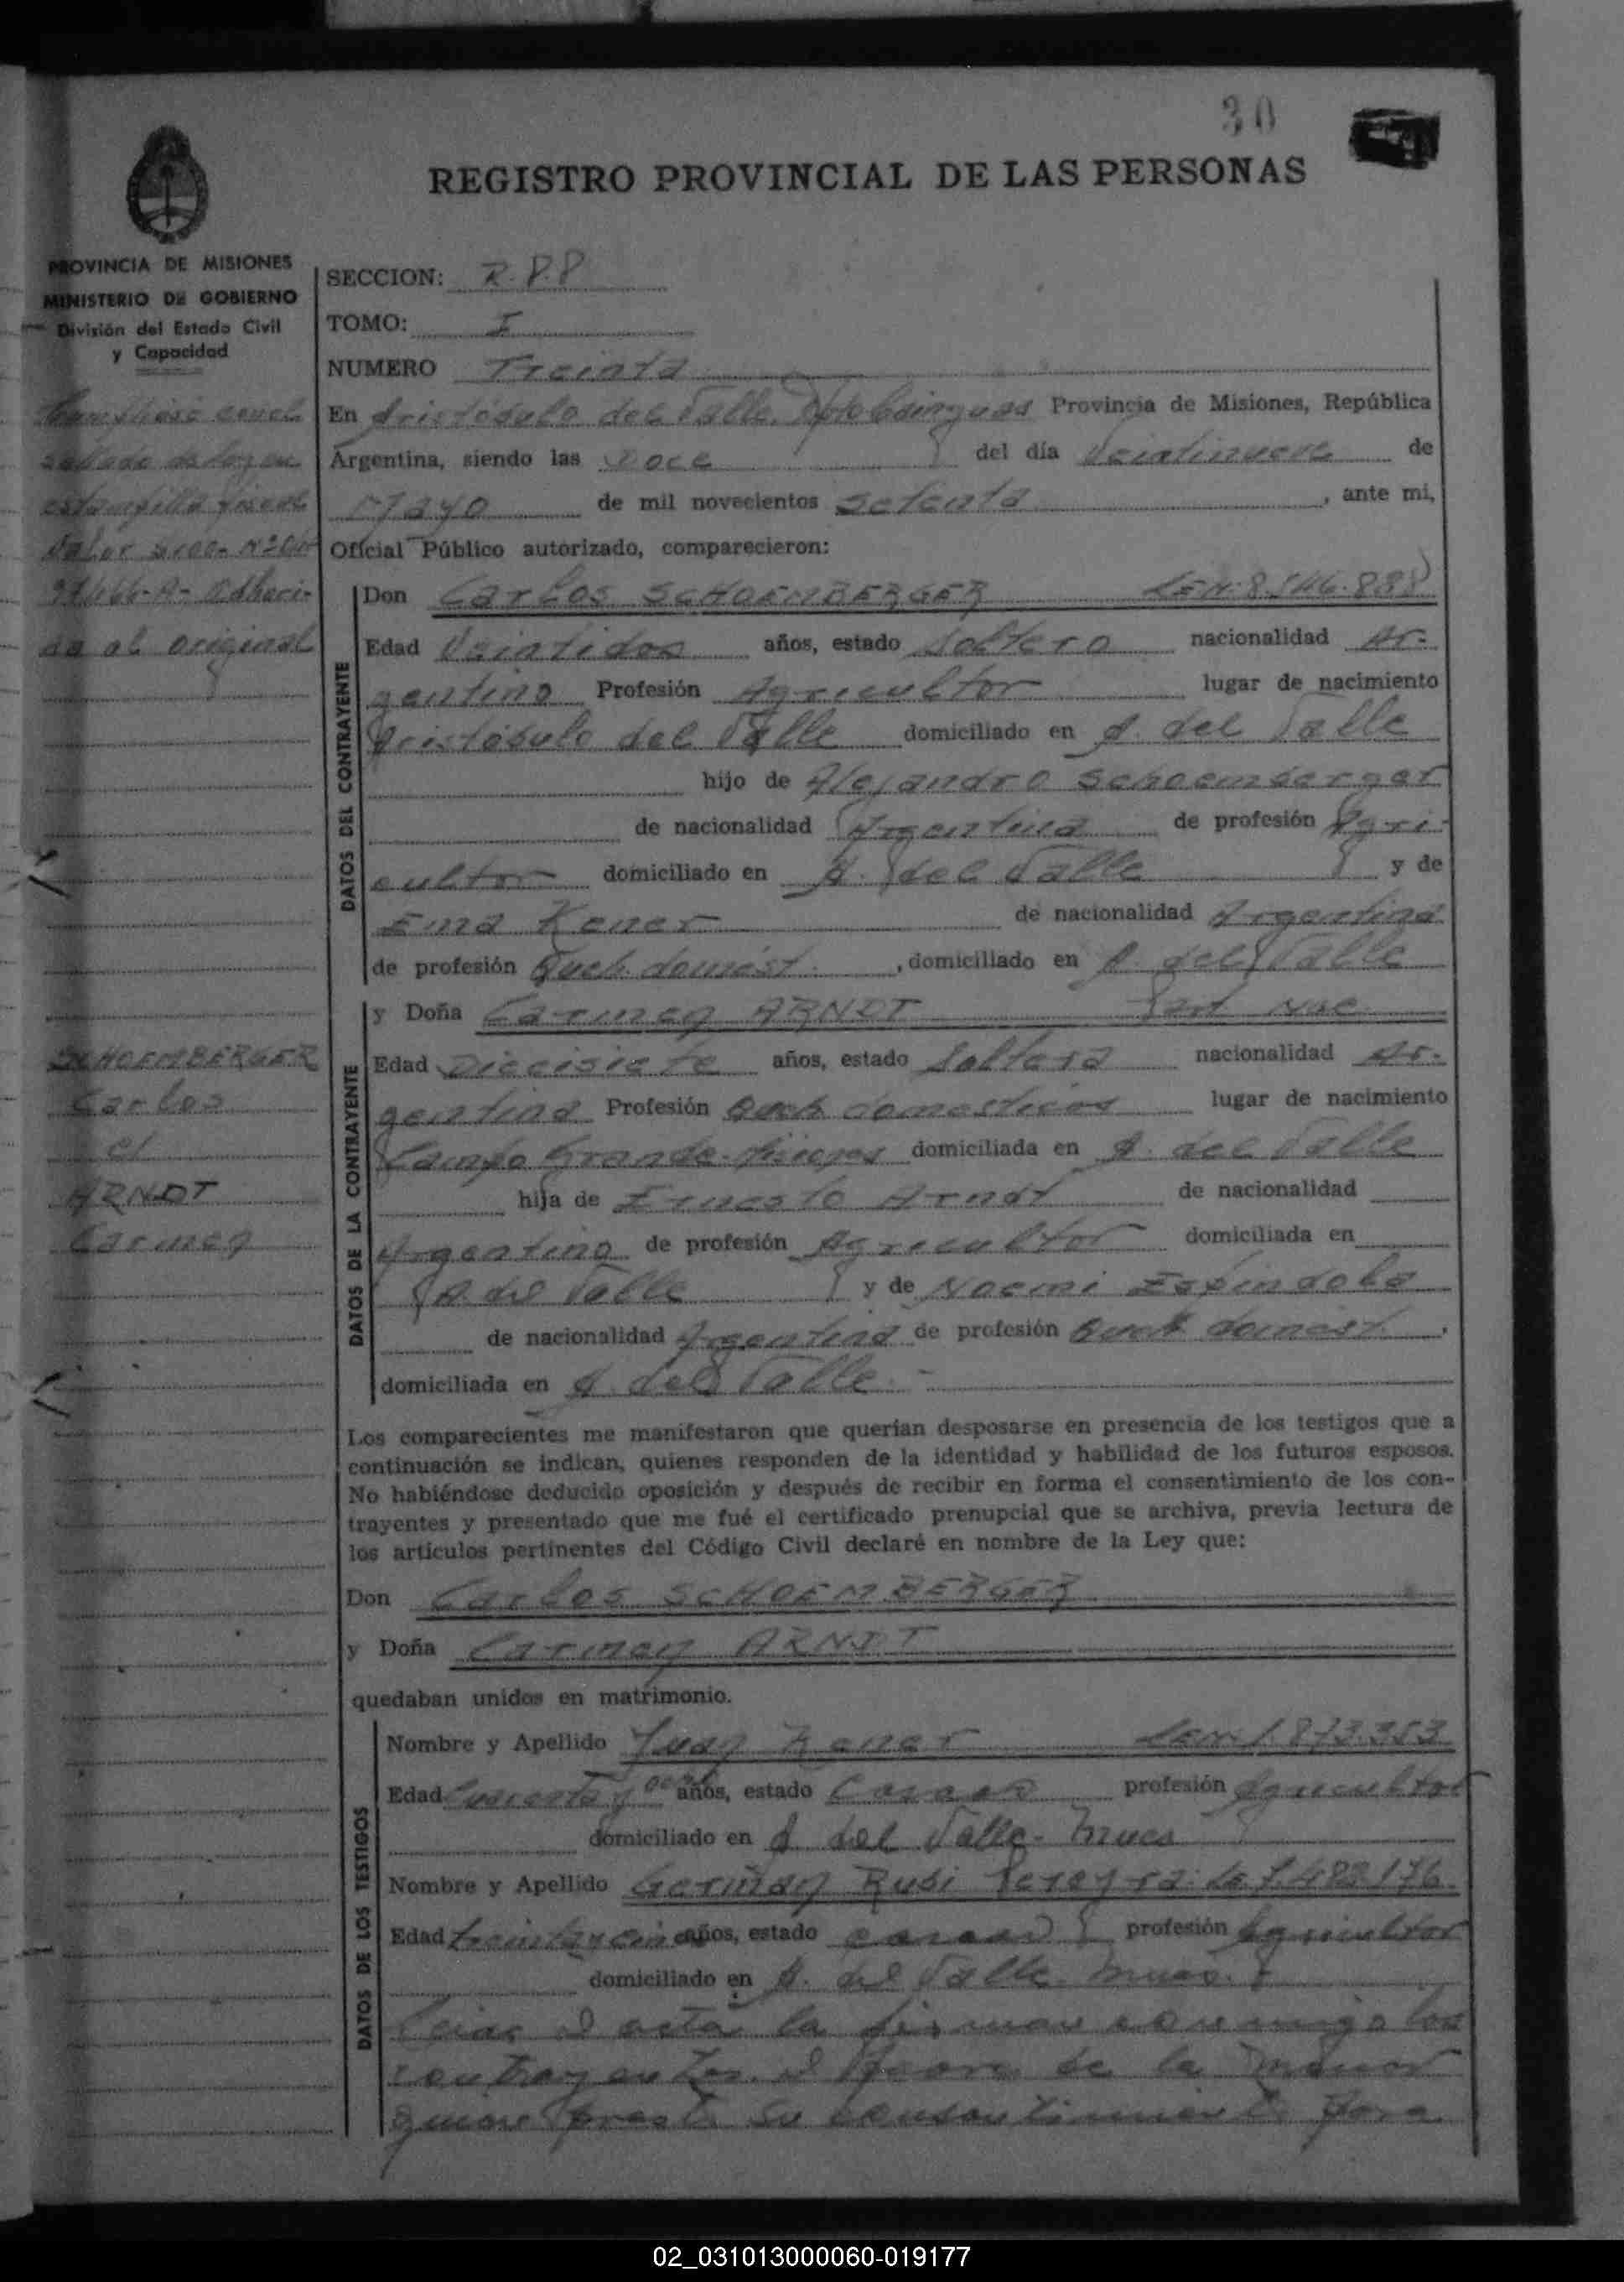 30
REGISTRO PROVINCIAL DE LAS PERSONAS
PROVINCIA DE MISIONES
MINISTERIO DE GOBIERNO
División del Estado Civil
y Capacidad
SECCION: R.P.P
TOMO: I
NUMERO Treinta
En Aristóbulo del Valle, Dpto Cainguas Provincia de Misiones, República
Argentina, siendo las Doce del día Veintinueve de
Mayo de mil novecientos setenta, ante mi,
Oficial Público autorizado, comparecieron:
sellado de ley en
estampilla fiscal
Valor $100-
Adheri-
da al original
DATOS DEL CONTRAYENTE
Don Carlos SCHOEMBERGER L.E.N. 8.546.888
Edad Veintidos años, estado Soltero nacionalidad Ar-
gentino Profesión Agricultor lugar de nacimiento
Aristóbulo del Valle domiciliado en A. del Valle
hijo de Alejandro Schoemberger
de nacionalidad Argentina de profesión Agri-
cultor domiciliado en A. del Valle y de
Ema Kener de nacionalidad Argentina
de profesión Queh. domést., domiciliado en A. del Valle
DATOS DE LA CONTRAYENTE
y Doña Carmen ARNDT Part Nac
Edad Diecisiete años, estado Soltera nacionalidad Ar-
gentina Profesión Queh domesticos lugar de nacimiento
Campo Grande-Misiones domiciliada en A. del Valle
hija de Ernesto Arndt de nacionalidad
Argentino de profesión Agricultor domiciliada en
A. del Valle y de Noemi Espindola
de nacionalidad Argentina de profesión Queh domest.,
domiciliada en A. del Valle.-
SCHOEMBERGER
Carlos
c/
ARNDT
Carmen
Los comparecientes me manifestaron que querían desposarse en presencia de los testigos que a
continuación se indican, quienes responden de la identidad y habilidad de los futuros esposos.
No habiéndose deducido oposición y después de recibir en forma el consentimiento de los con-
trayentes y presentado que me fué el certificado prenupcial que se archiva, previa lectura de
los artículos pertinentes del Código Civil declaré en nombre de la Ley que:
Don Carlos SCHOEMBERGER
y Doña Carmen ARNDT
quedaban unidos en matrimonio.
DATOS DE LOS TESTIGOS
Nombre y Apellido Juan Kener L.E.N. 1.873.353
Edad Cuarenta y años, estado Casado profesión Agricultor
domiciliado en A del Valle-
Nombre y Apellido Germán Rubi Pereyra L.E 7.483.176
Edad treinta y cinco años, estado casado profesión Agricultor
domiciliado en A. del Valle.
Leida el acta la firman conmigo los
contrayentes, el padre de la menor
quien presta su consentimiento para
02_031013000060-019177